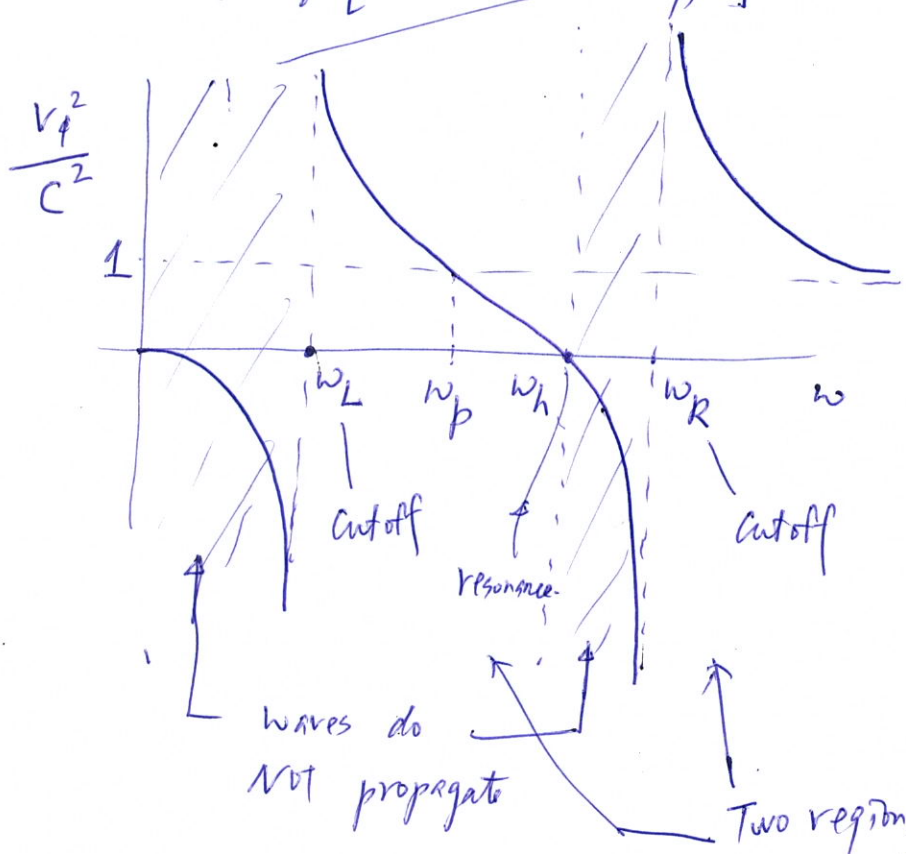 V_φ^2
C^2
1
ω_L
ω_p
ω_h
ω_R
ω
Cutoff
Cutoff
resonance
waves do
Not propagate
Two region